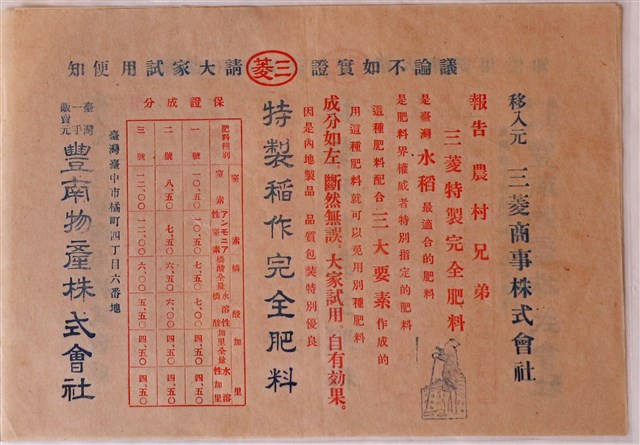 議論不如實證 三菱 請大家試用便知
移入元 三菱商事株式會社
報告 農村兄弟
三菱特製完全肥料
是臺灣水稻最適合的肥料
是肥料界權威者特別指定的肥料
這種肥料配合三大要素作成的
用這種肥料就可以免用別種肥料
成分如左、斷然無誤。大家試用 自有効果。
因是內地製品 品質包裝特別優良
特製稲作完全肥料
保證成分
肥料種別 窒素 窒素全量 アンモニア性窒素 燐酸 燐酸全量 水溶性燐酸 加里 加里全量 水溶性加里
一號 一〇、五〇 一〇、五〇 七、五〇 七、〇〇 四、五〇 四、五〇
二號 八、五〇 七、五〇 六、五〇 六、〇〇 四、五〇 四、五〇
三號 一二、〇〇 一二、〇〇 六、〇〇 五、五〇 四、五〇 四、五〇
臺灣臺中市橘町四丁目六番地
臺灣一手販賣元 豐南物產株式會社